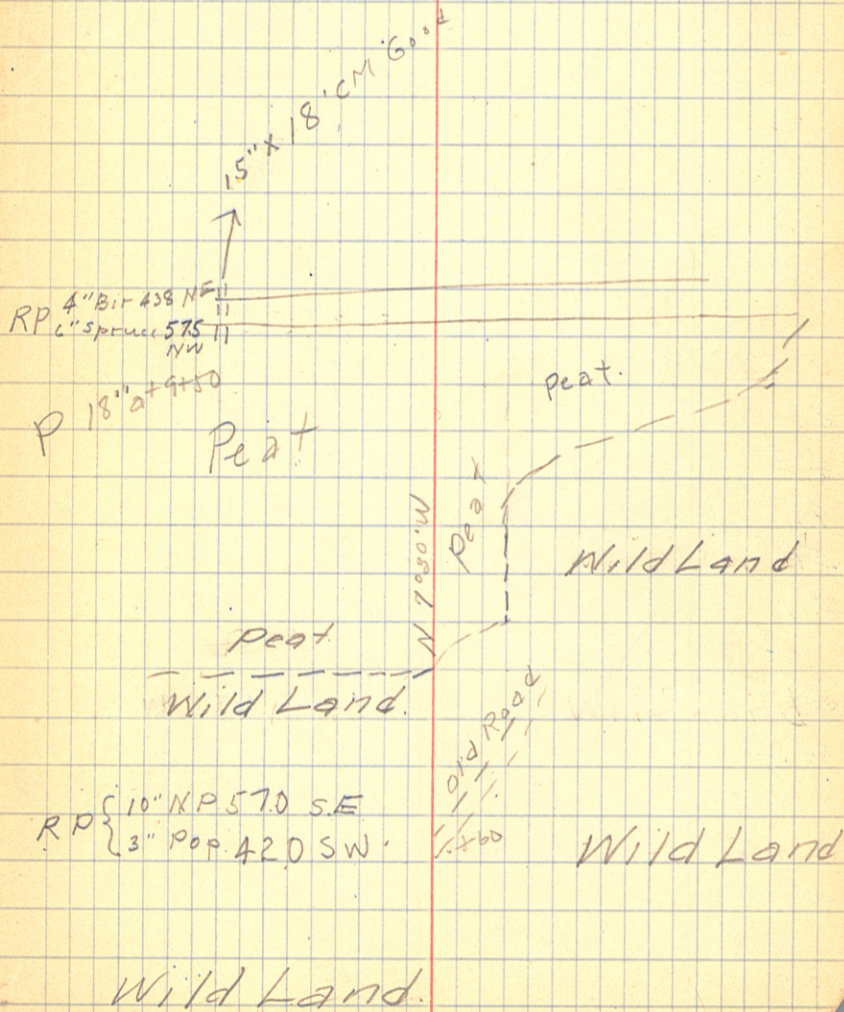 15" x 18' CM Good
RP 4" Bir 438 NE
6" Spruce 575
NW
P 18" at 9+50
Peat
Peat.
Peat
N 7°30'W
Wild Land
Peat
Wild Land.
Old Road
RP { 10" NP 570 S.E
3" Pop. 420 SW.
+60
Wild Land
Wild Land.